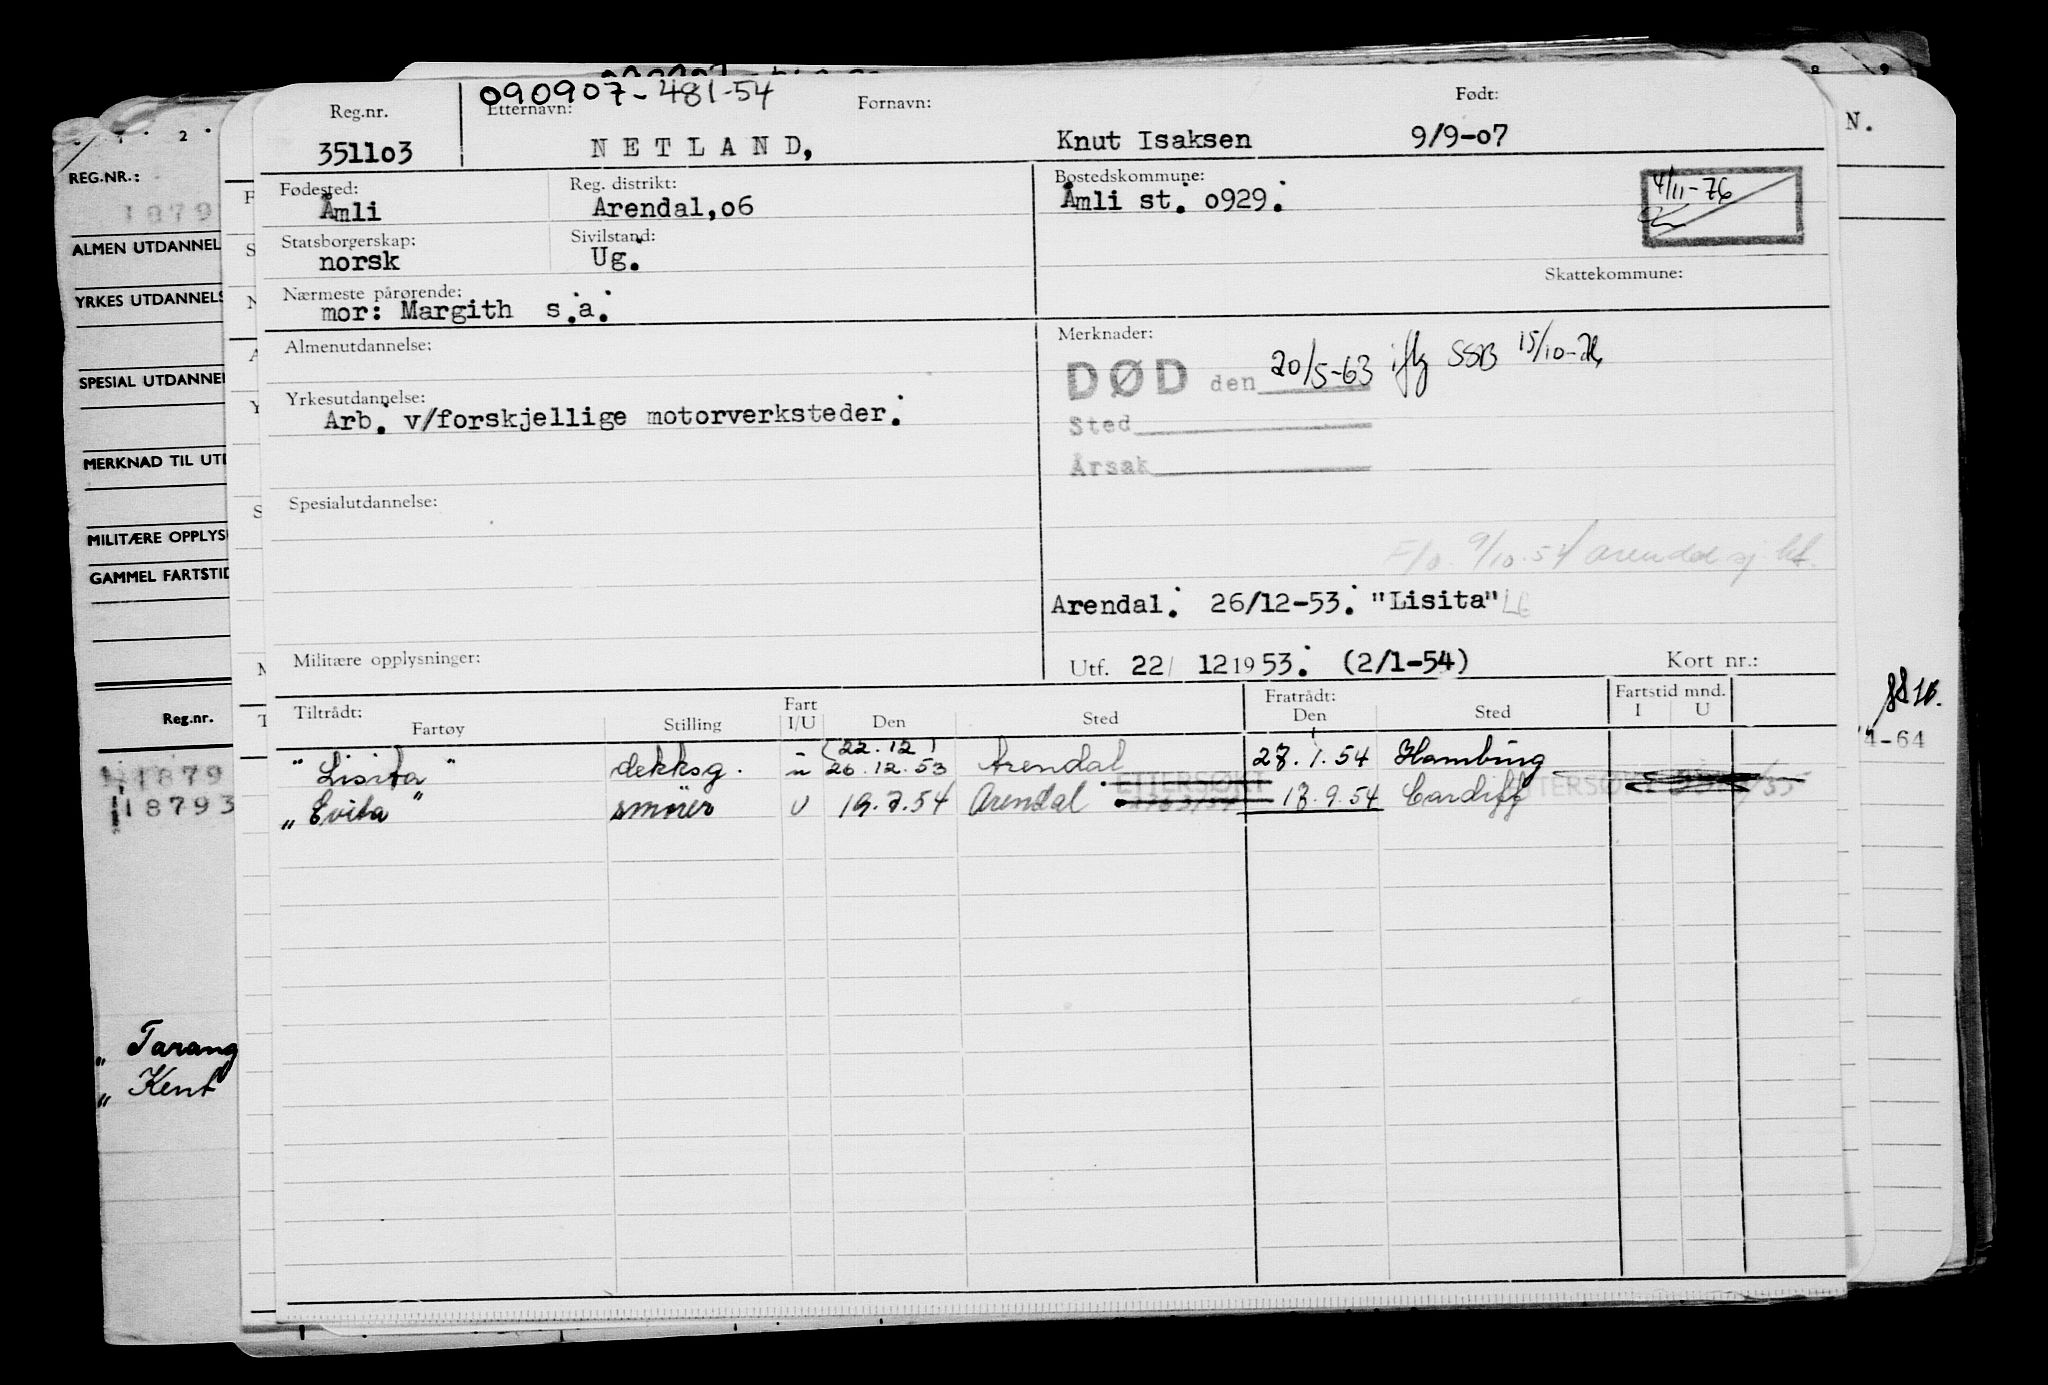 090907-481-54
Reg.nr. Etternavn: Fornavn: Født:
351103 NETLAND, Knut Isaksen 9/9-07
Fødested: Reg. distrikt: Bostedskommune:
Åmli Arendal,06 Åmli st. 0929.
4/11-76
Statsborgerskap: Sivilstand:
norsk Ug.
Skattekommune:
Nærmeste pårørende:
mor: Margith s.a.
Almenutdannelse: Merknader:
DØD den 20/5-63 iflg SSB 15/10-76
Yrkesutdannelse:
Arb. v/forskjellige motorverksteder.
Sted
Årsak
Spesialutdannelse:
F/o. 9/10.54 Arendal sj.
Arendal. 26/12-53. "Lisita"
Militære opplysninger: Utf. 22/ 12 1953. (2/1-54) Kort nr.:
Tiltrådt: Fratrådt: Fartstid mnd.
Fartøy Stilling Fart I/U Den Sted Den Sted I U
(22.12)
"Lisita" dekksg. u 26.12.53 Arendal 28.1.54 Hamburg
ETTERSØKT
„Evita" smører U 19.7.54 Arendal 18.9.54 Cardiff
REG.NR.:
1879
ALMEN UTDANNEL
YRKES UTDANNELS
SPESIAL UTDANNEL
MERKNAD TIL UTD
MILITÆRE OPPLYS
GAMMEL FARTSTID
Reg.nr.
1879
18793
„ Tarang
„ Kent
N.
4-64